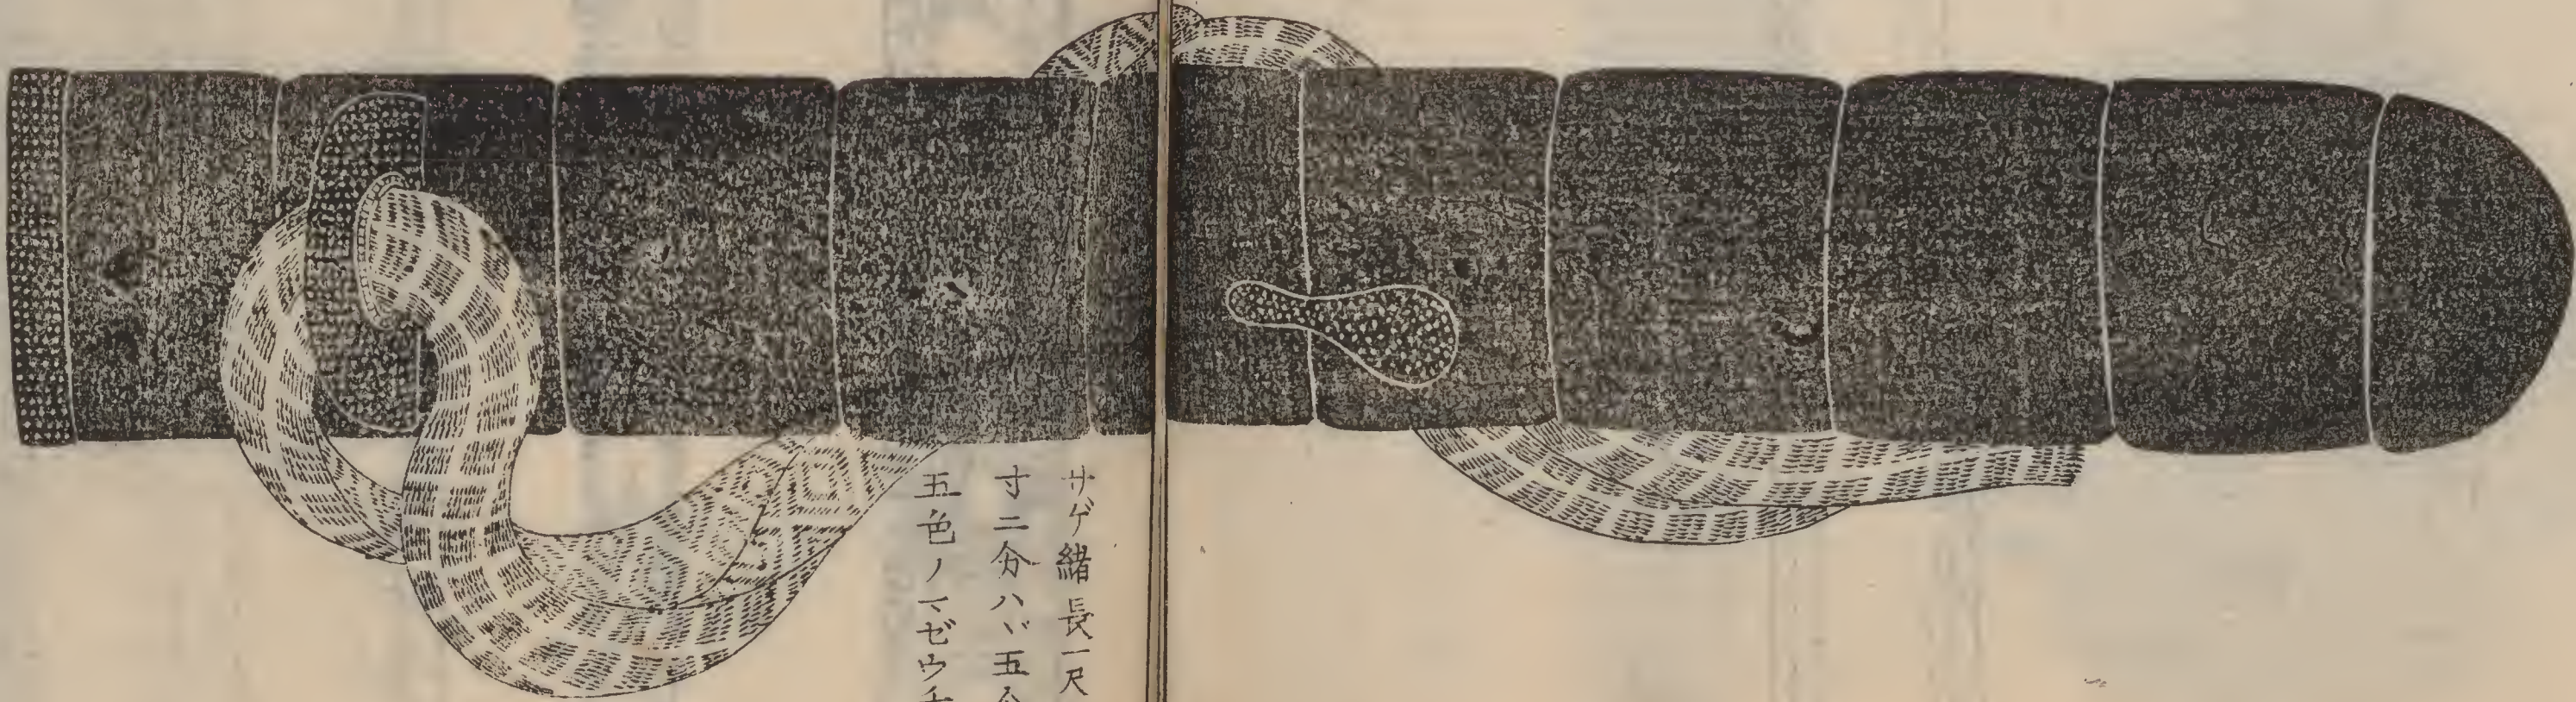 サゲ緒長一尺
寸二分ハヾ五分
五色ノマゼウチ